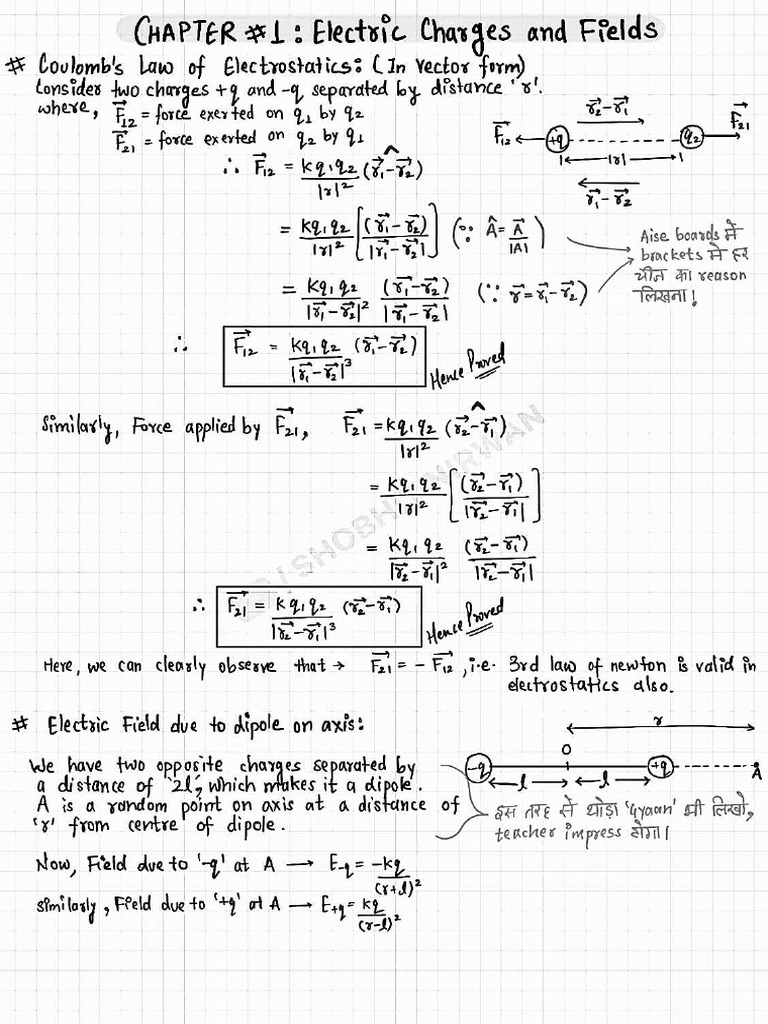 CHAPTER #1: Electric Charges and Fields
# Coulomb's Law of Electrostatics: (In vector form)
Consider two charges +q and -q separated by distance 'r'.
where, F⃗₁₂ = force exerted on q₁ by q₂
F⃗₂₁ = force exerted on q₂ by q₁
r⃗₂-r⃗₁
F⃗₁₂ +q q₂ F⃗₂₁
|r|
r⃗₁-r⃗₂
∴ F⃗₁₂ = kq₁q₂/|r|² (r⃗₁-r⃗₂)^
= kq₁q₂/|r|² [(r⃗₁-r⃗₂)/|r⃗₁-r⃗₂|] (∵ Â = A⃗/|A|)
= kq₁q₂/|r⃗₁-r⃗₂|² (r⃗₁-r⃗₂)/|r⃗₁-r⃗₂| (∵ r⃗=r⃗₁-r⃗₂)
Aise boards में
brackets में हर
चीज का reason
लिखना!
∴ F⃗₁₂ = kq₁q₂/|r⃗₁-r⃗₂|³ (r⃗₁-r⃗₂)
Hence Proved
Similarly, Force applied by F⃗₂₁, F⃗₂₁ = kq₁q₂/|r|² (r⃗₂-r⃗₁)^
= kq₁q₂/|r|² [(r⃗₂-r⃗₁)/|r⃗₂-r⃗₁|]
= kq₁q₂/|r⃗₂-r⃗₁|² (r⃗₂-r⃗₁)/|r⃗₂-r⃗₁|
∴ F⃗₂₁ = kq₁q₂/|r⃗₂-r⃗₁|³ (r⃗₂-r⃗₁)
Hence Proved
Here, we can clearly observe that → F⃗₂₁ = - F⃗₁₂, i.e. 3rd law of newton is valid in
electrostatics also.
# Electric Field due to dipole on axis:
We have two opposite charges separated by
a distance of '2l', which makes it a dipole.
A is a random point on axis at a distance of
'r' from centre of dipole.
r
O
-q +q A
l l
इस तरह से थोड़ा 'Gyaan' भी लिखो,
teacher impress होगा।
Now, Field due to '-q' at A → E-q = -kq/(r+l)²
similarly, Field due to '+q' at A → E+q = kq/(r-l)²